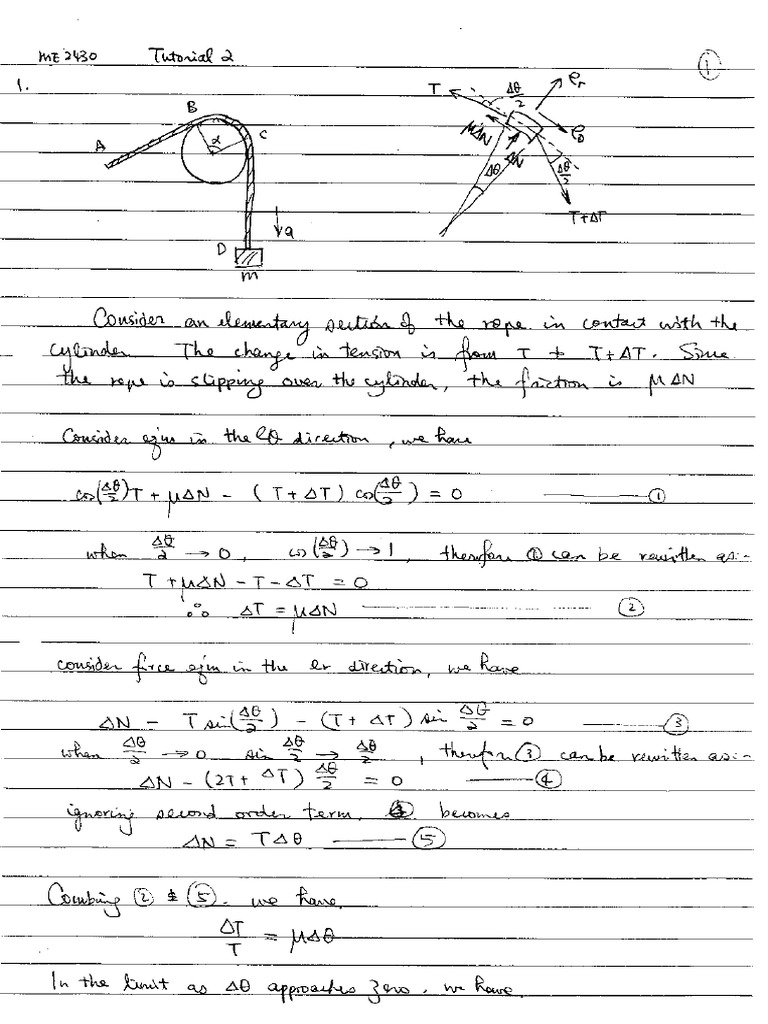 ME2430 Tutorial 2 ①
1.
B
A
α
C
D
a
m
T
Δθ/2
er
eθ
μΔN
ΔN
Δθ
Δθ/2
T+ΔT
Consider an elementary section of the rope in contact with the
cylinder. The change in tension is from T to T+ΔT. Since
the rope is slipping over the cylinder, the friction is μΔN
Consider eqm in the eθ direction, we have
cos(Δθ/2)T + μΔN - (T+ΔT) cos(Δθ/2) = 0 ——— ①
when Δθ/2 → 0, cos(Δθ/2) → 1, therefore ① can be rewritten as:-
T + μΔN - T - ΔT = 0
∴ ΔT = μΔN ——— ②
consider force eqm in the er direction, we have
ΔN - T sin(Δθ/2) - (T + ΔT) sin Δθ/2 = 0 ——— ③
when Δθ/2 → 0 sin Δθ/2 → Δθ/2, therefore ③ can be rewritten as:-
ΔN - (2T + ΔT) Δθ/2 = 0 ——— ④
ignoring second order term, becomes
ΔN = TΔθ ——— ⑤
Combing ② & ⑤. we have.
ΔT/T = μΔθ
In the limit as Δθ approaches zero. we have.